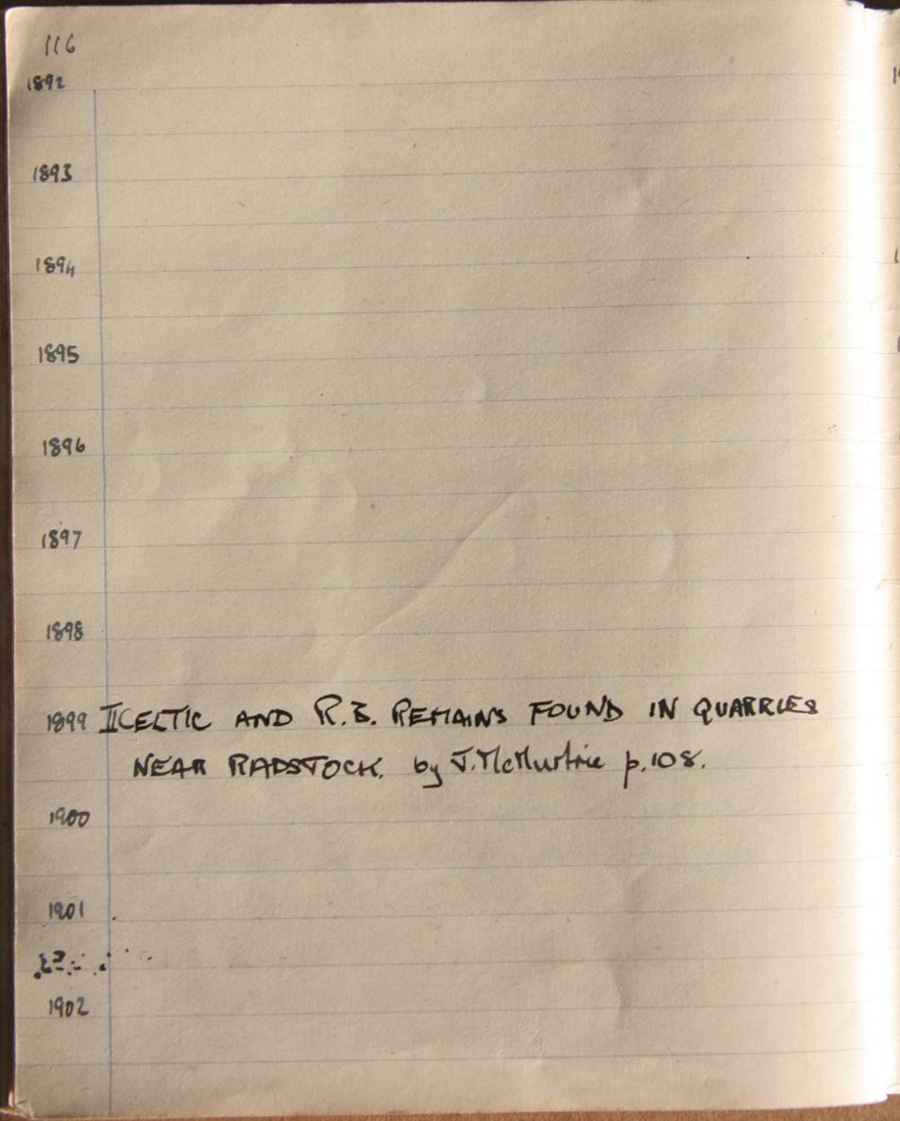 116
1892
1893
1894
1895
1896
1897
1898
1899 II CELTIC AND R.B. REMAINS FOUND IN QUARRIES
NEAR RADSTOCK. by J. McMurtrie p.108.
1900
1901
1902